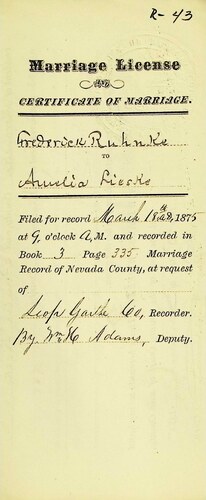 R-43
Marriage License
AND
CERTIFICATE OF MARRIAGE.
Frederick Ruhnke
TO
Amelia Lieske
Filed for record March 18th, 1875
at 9, o'clock A, M. and recorded in
Book 3 Page 335 Marriage
Record of Nevada County, at request
of
Co, Recorder.
By Wm H Adams, Deputy.